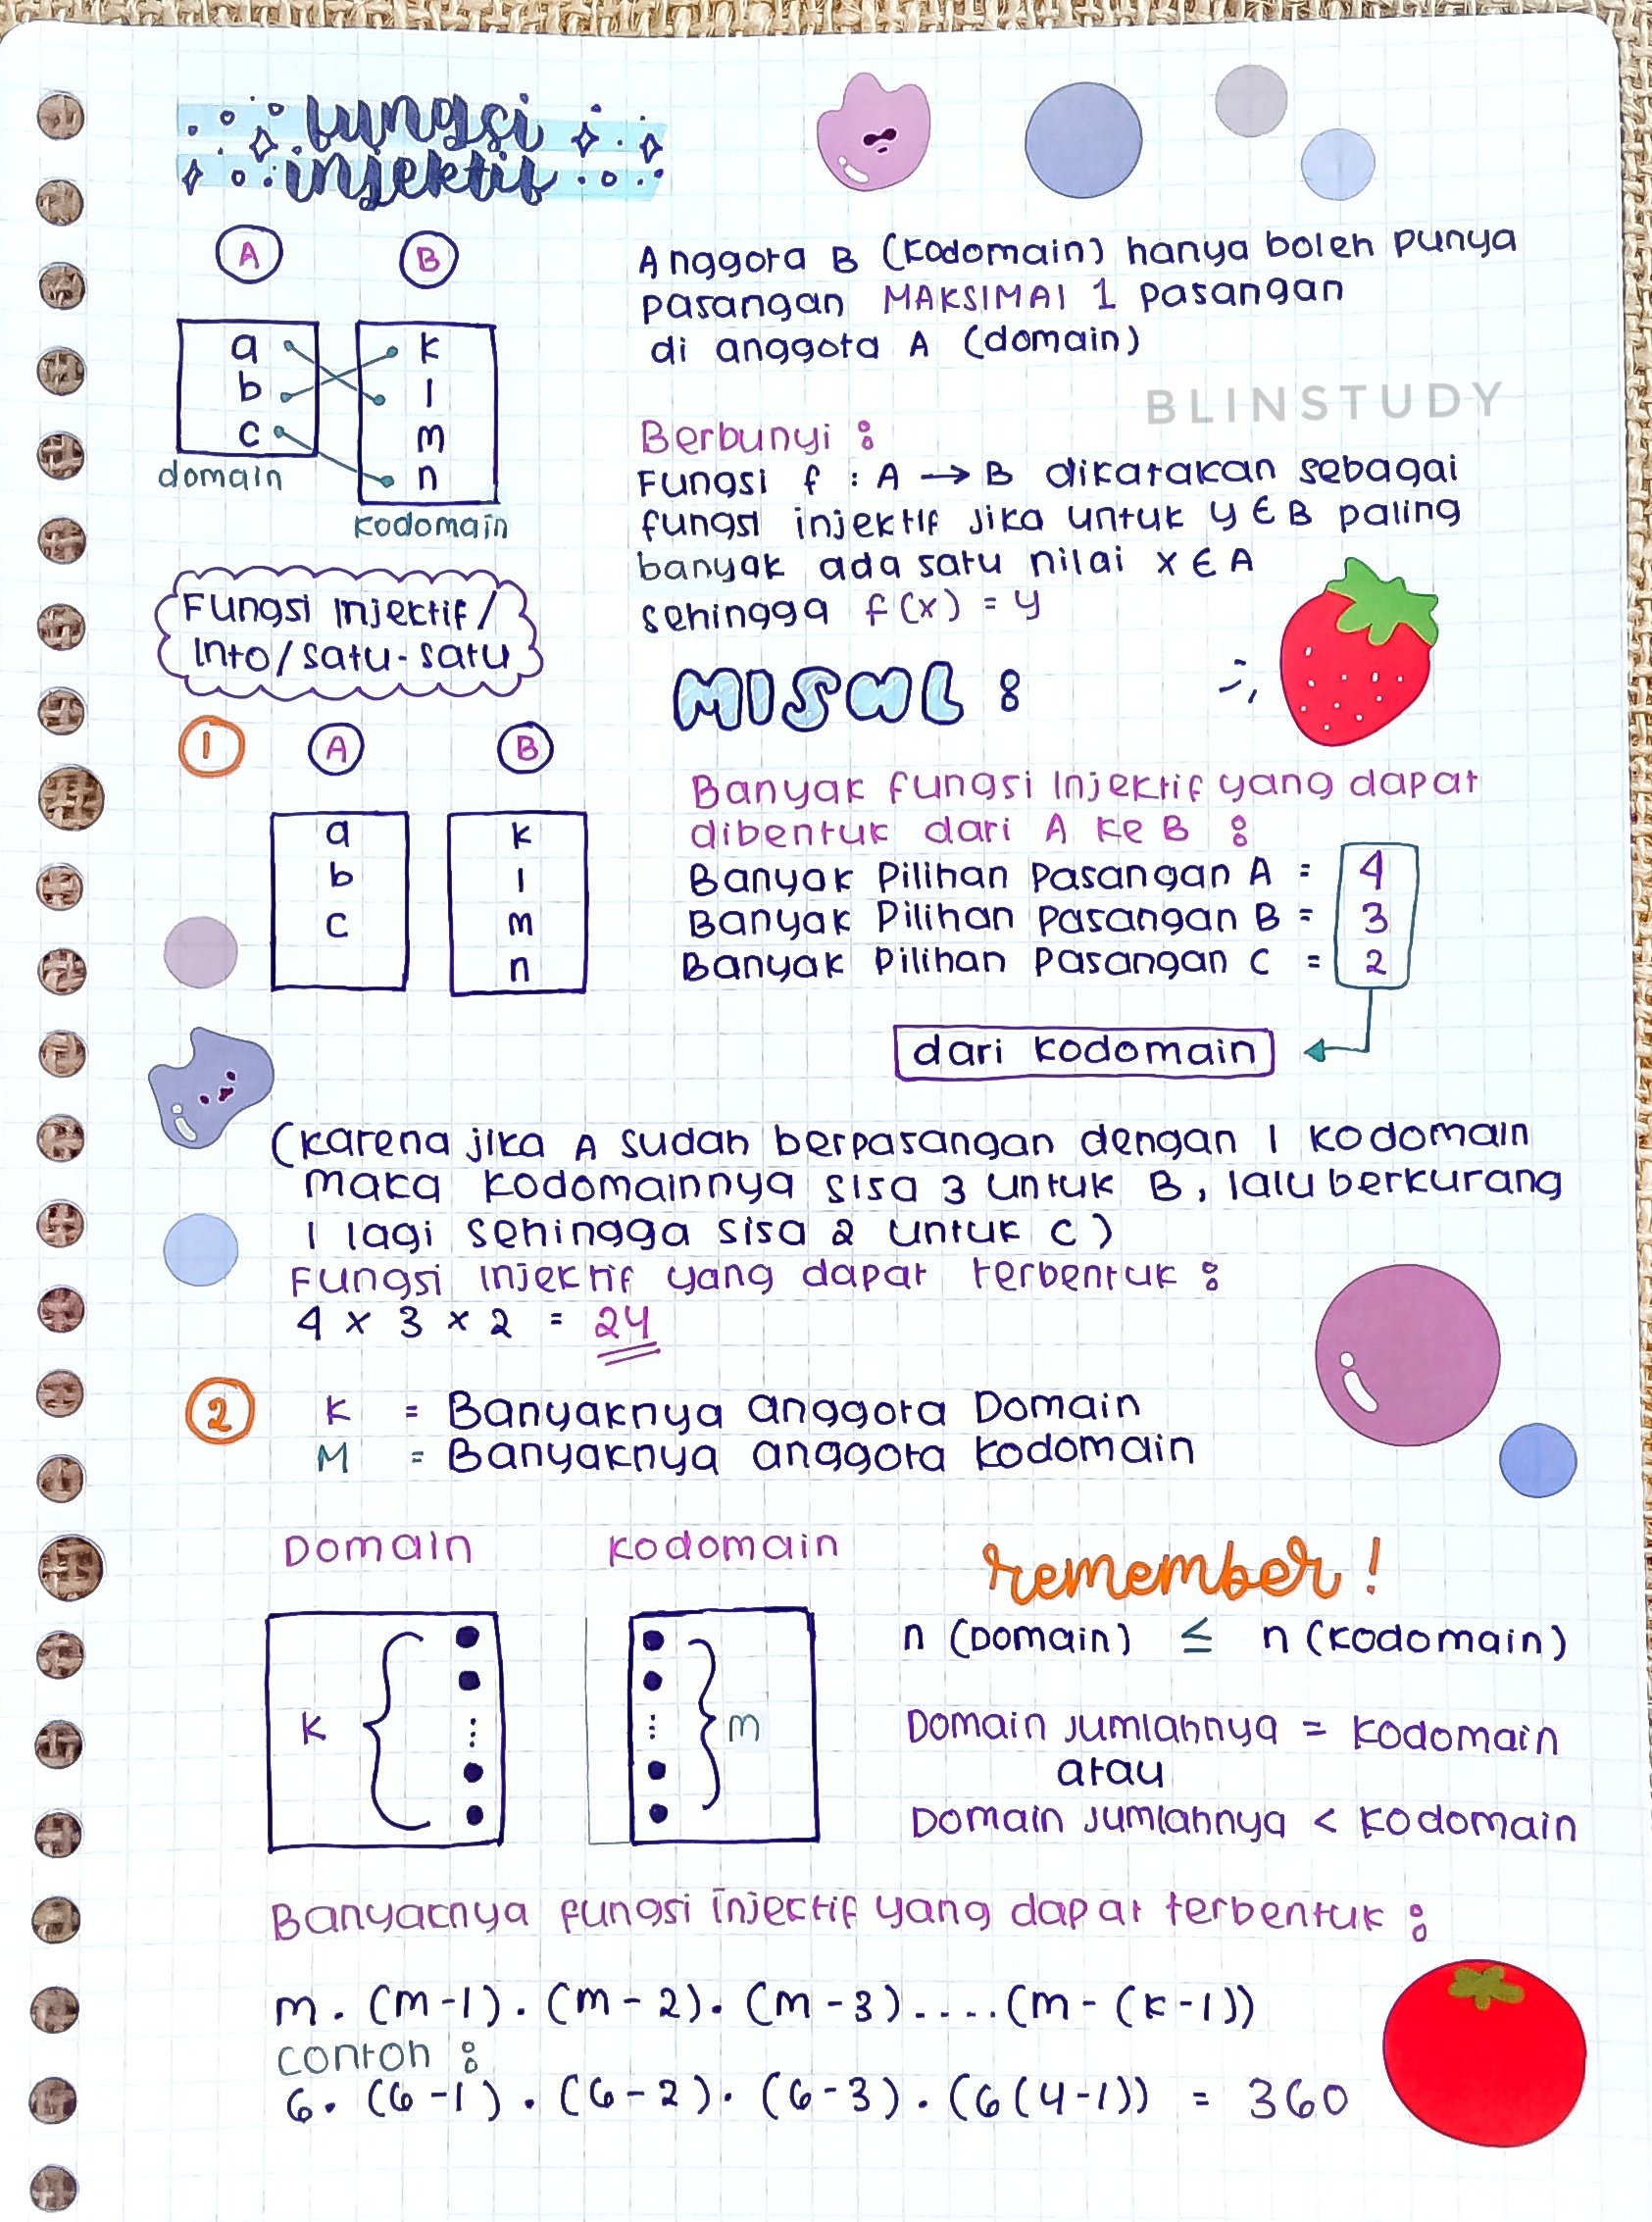 fungsi
injektif
A B
a k
b l
c m
n
domain
kodomain
Anggota B (kodomain) hanya boleh punya
pasangan MAKSIMAl 1 pasangan
di anggota A (domain)
BLINSTUDY
Berbunyi :
Fungsi f : A → B dikatakan sebagai
fungsi injektif jika untuk y ∈ B paling
banyak ada satu nilai x ∈ A
sehingga f(x) = y
Fungsi Injectif /
Into / satu-satu
MISAL :
1 A B
a k
b l
c m
n
Banyak fungsi Injektif yang dapat
dibentuk dari A ke B :
Banyak Pilihan Pasangan A = 4
Banyak Pilihan Pasangan B = 3
Banyak Pilihan Pasangan C = 2
dari kodomain
(karena jika A sudah berpasangan dengan 1 kodomain
maka kodomainnya sisa 3 untuk B, lalu berkurang
1 lagi sehingga sisa 2 untuk C)
Fungsi injektif yang dapat terbentuk :
4 x 3 x 2 = 24
2 K = Banyaknya anggota Domain
M = Banyaknya anggota kodomain
Domain kodomain
K m
remember!
n (Domain) ≤ n (kodomain)
Domain jumlahnya = kodomain
atau
Domain jumlahnya < kodomain
Banyacnya fungsi injectif yang dapat terbentuk :
m . (m-1) . (m-2) . (m-3) .... (m-(k-1))
contoh :
6. (6-1) . (6-2) . (6-3) . (6(4-1)) = 360